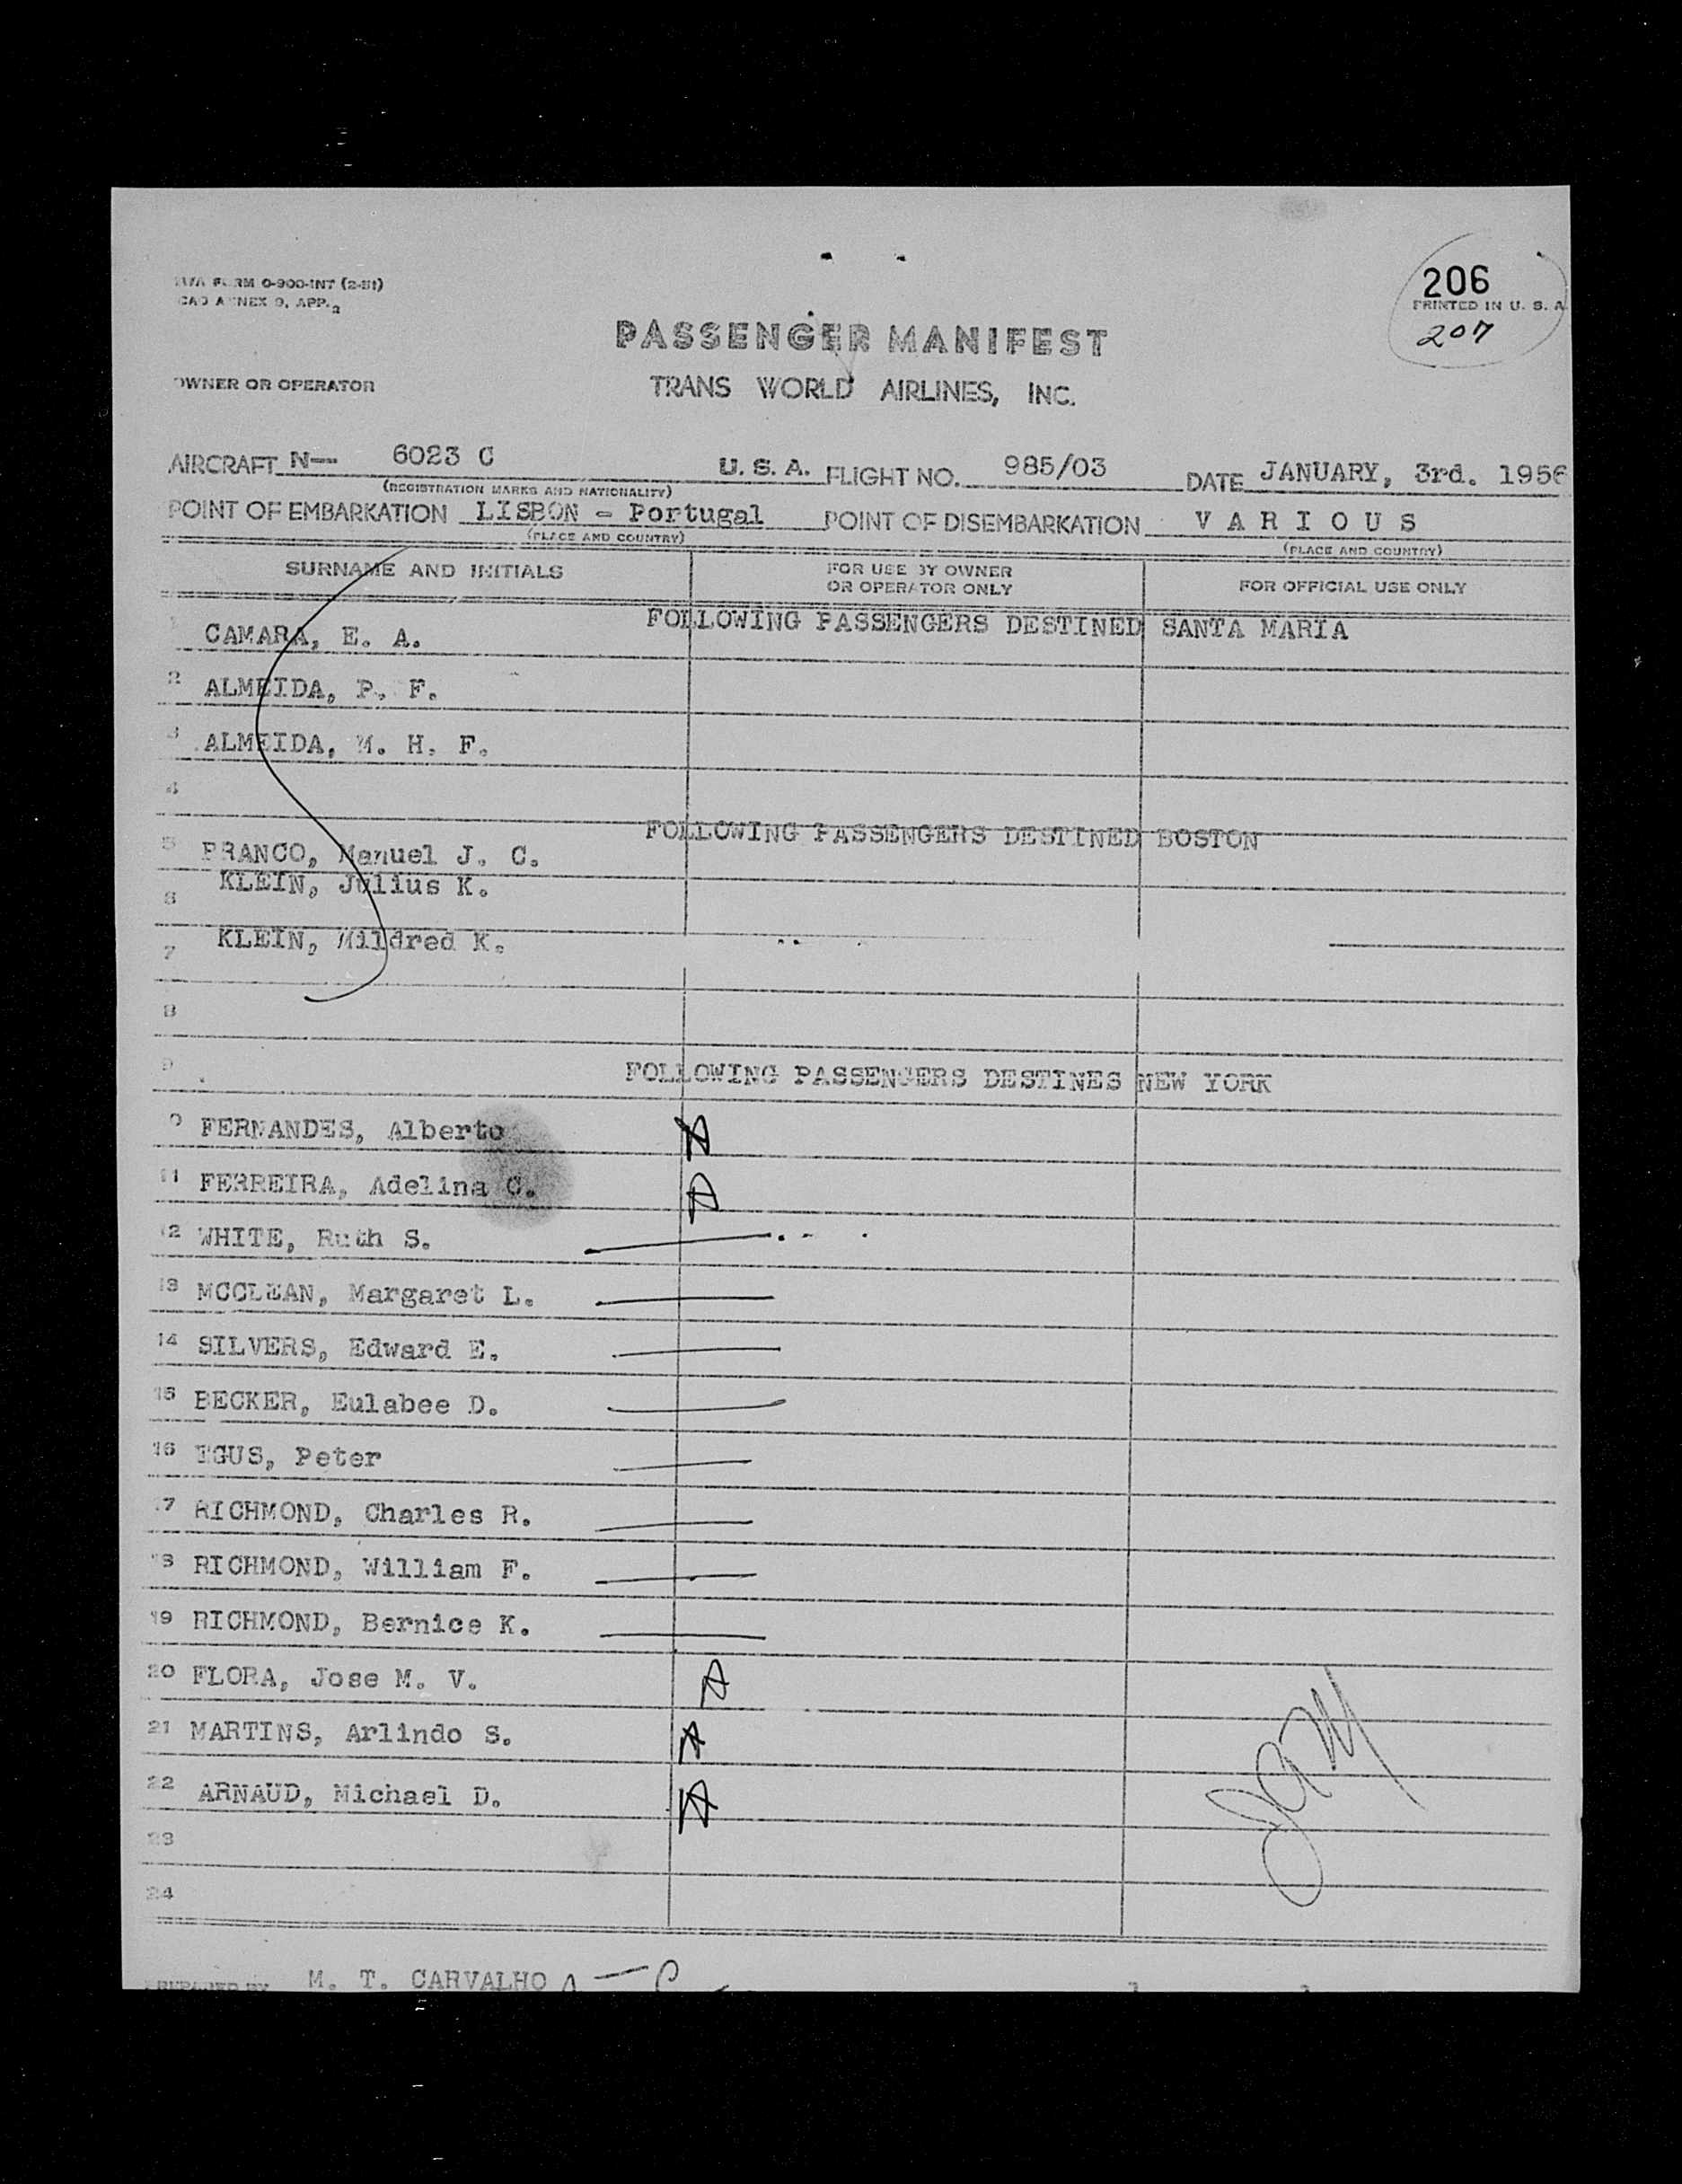 206
FORM O-900-INT (2-51)
PRINTED IN U. S. A.
ANNEX 9, APP. 2
207
PASSENGER MANIFEST
OWNER OR OPERATOR
TRANS WORLD AIRLINES, INC.
AIRCRAFT N— 6023 C U. S. A. FLIGHT NO. 985/03 DATE JANUARY, 3rd. 1956
(REGISTRATION MARKS AND NATIONALITY)
POINT OF EMBARKATION LISBON - Portugal POINT OF DISEMBARKATION V A R I O U S
(PLACE AND COUNTRY) (PLACE AND COUNTRY)
SURNAME AND INITIALS FOR USE BY OWNER OR OPERATOR ONLY FOR OFFICIAL USE ONLY
FOLLOWING PASSENGERS DESTINED SANTA MARIA
1 CAMARA, E. A.
2 ALMEIDA, P. F.
3 ALMEIDA, M. H. F.
4
FOLLOWING PASSENGERS DESTINED BOSTON
5 BRANCO, Manuel J. C.
6 KLEIN, Julius K.
7 KLEIN, Mildred K.
8
9 FOLLOWING PASSENGERS DESTINES NEW YORK
0 FERNANDES, Alberto A
11 FERREIRA, Adelina C. A
12 WHITE, Ruth S.
13 MCCLEAN, Margaret L.
14 SILVERS, Edward E.
15 BECKER, Eulabee D.
16 Peter
17 RICHMOND, Charles R.
18 RICHMOND, William F.
19 RICHMOND, Bernice K.
20 FLORA, Jose M. V. A
21 MARTINS, Arlindo S. A
22 ARNAUD, Michael D. A
23
24
PREPARED BY M. T. CARVALHO